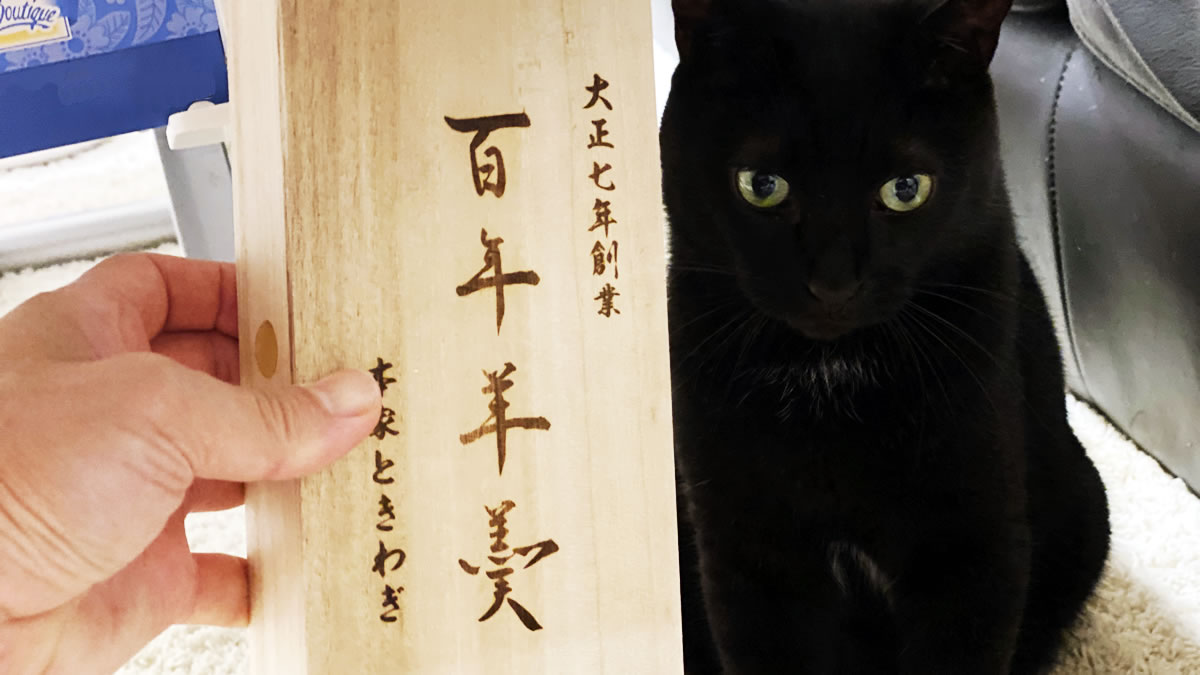 outique
大正七年創業
百年羊羹
本家ときわぎ